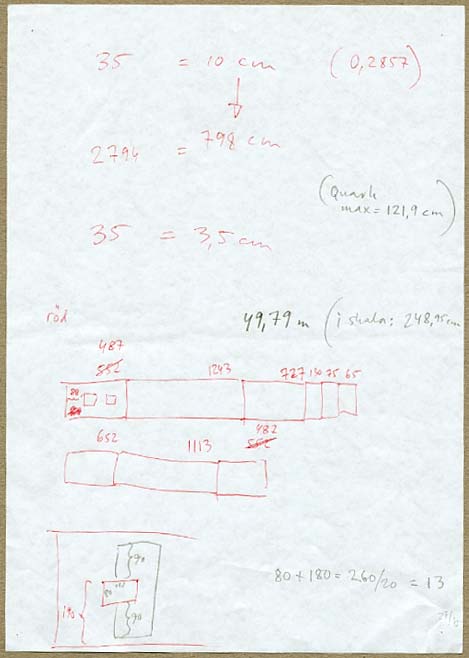 35 = 10 cm (0,2857)
2794 = 798 cm
(Quark
max = 121,9 cm)
35 = 3,5 cm
röd
49,79 m (i skala: 248,95 cm
487
552 1243 727 130 75 65
80
652 1113 482
552
90
80
190
90
80 + 180 = 260/20 = 13